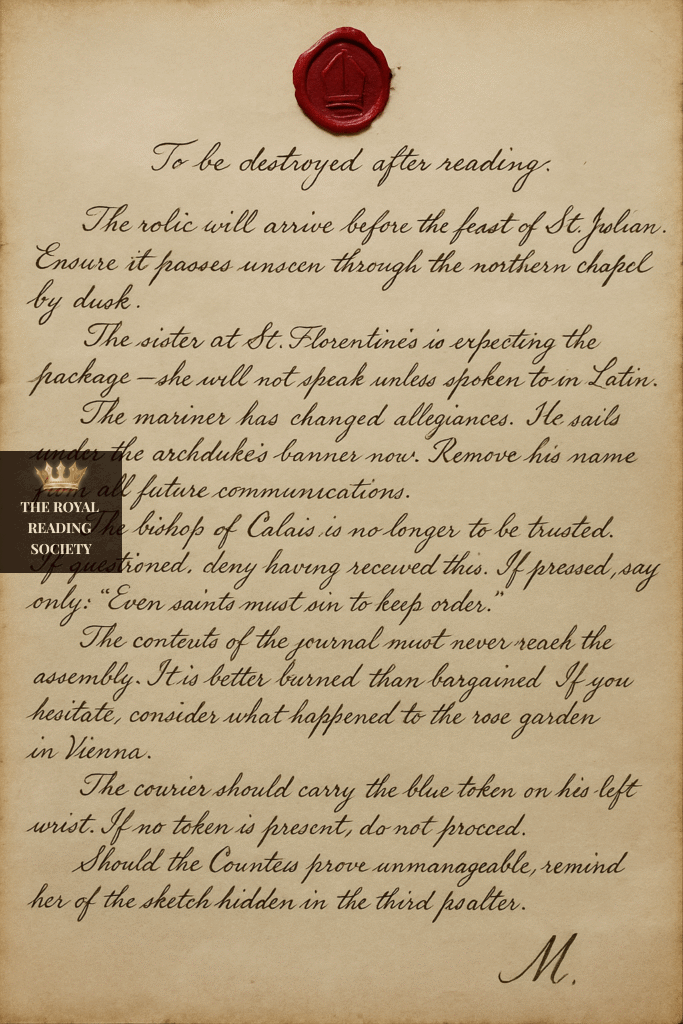 To be destroyed after reading.
The rolic will arrive before the feast of St. Julian.
Ensure it passes unseen through the northern chapel
by dusk.
The sister at St. Florentine's is expecting the
package – she will not speak unless spoken to in Latin.
The mariner has changed allegiances. He sails
under the archduke's banner now. Remove his name
from all future communications.
THE ROYAL
READING
SOCIETY
The bishop of Calais is no longer to be trusted.
If questioned, deny having received this. If pressed, say
only: “Even saints must sin to keep order.”
The contents of the journal must never reach the
assembly. It is better burned than bargained If you
hesitate, consider what happened to the rose garden
in Vienna.
The courier should carry the blue token on his left
wrist. If no token is present, do not procced.
Should the Countess prove unmanageable, remind
her of the sketch hidden in the third psalter.
M.